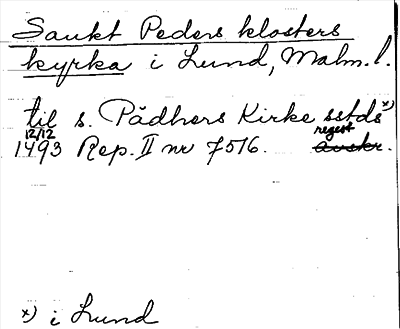 Sankt Peders klosters
kyrka i Lund, Malm. l.
til s. Pädhers Kirke sstds x)
12/12 regest
1493 Rep. II nr 7516. avskr.
x) i Lund